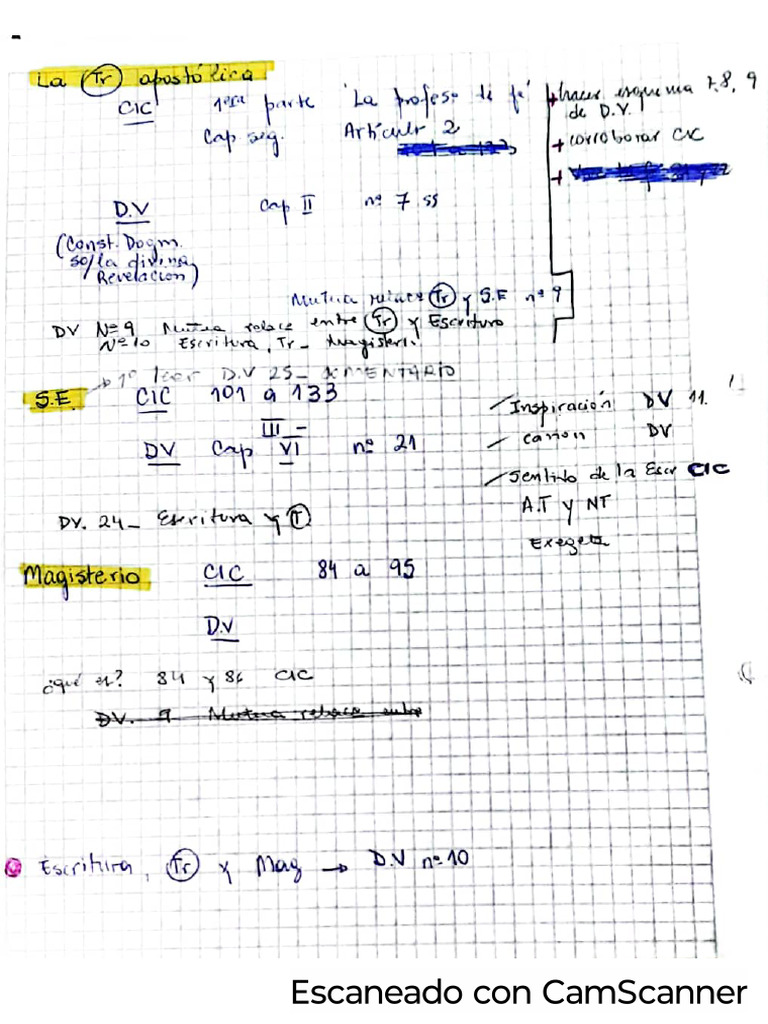 La (Tr) apostólica
CIC 1era parte "La profeso de fe"
Cap seg. Artículo 2
+ hacer esquema 7, 8, 9
de D.V.
+ corroborar CIC
+
D.V Cap II nº 7 ss
(Const. Dogm.
so/la divina
Revelación)
Mutua relacs (Tr) y S.E nº 9
DV Nº 9 Mutua relacs entre (Tr) y Escritura
Nº 10 Escritura, Tr - Magisteri
1º leer D.V 25
S.E. CIC 101 a 133
III -
DV Cap VI nº 21
/ Inspiración DV 11.
/ canon DV
/ Sentido de la Escr CIC
A.T y NT
Exegeta
DV. 24 - Escritura y (T)
Magisterio CIC 84 a 95
D.V
¿qué es? 84 y 86 CIC
DV. 9 Mutua relacs entre
Escritura, (Tr) y Mag → D.V nº 10
Escaneado con CamScanner